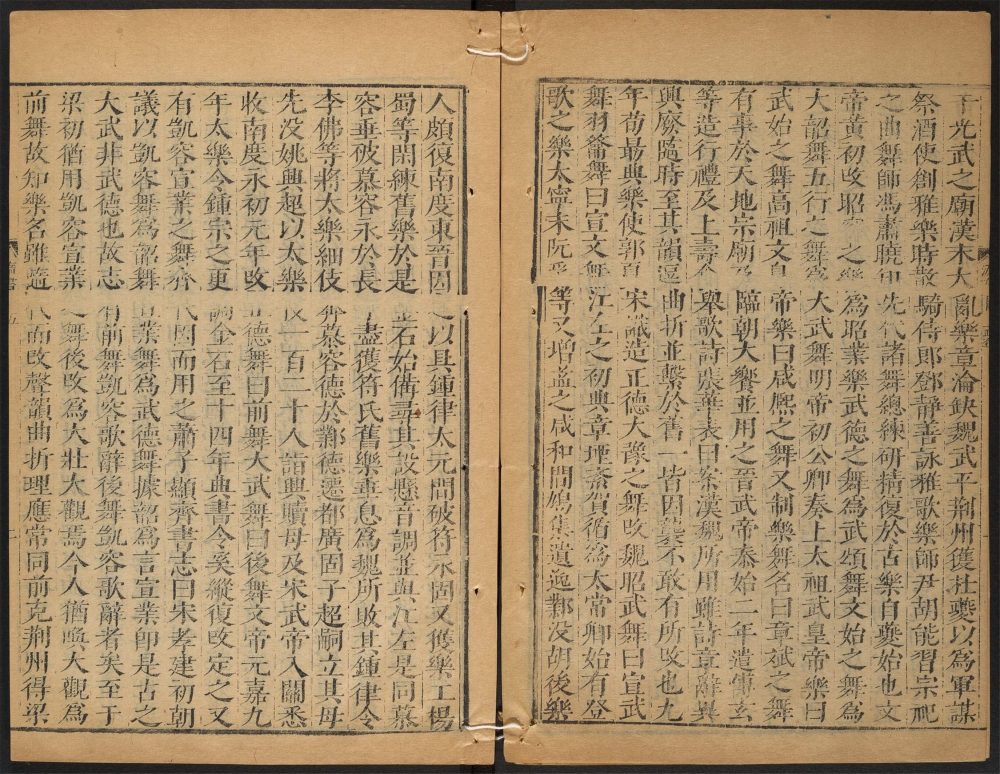 于光武之廟漢末大亂樂章淪缺魏武平荆州獲杜夔以爲軍謀
祭酒使創雅樂時散騎侍郎鄧靜善詠雅歌樂師尹胡能習宗祀
之曲舞師馮肅曉知先代諸舞總練研精復於古樂自夔始也文
帝黃初改昭之樂爲昭業樂武德之舞爲武頌舞文始之舞爲
大韶舞五行之舞爲大武舞明帝初公卿奏上太祖武皇帝樂曰
武始之舞高祖文皇帝樂曰咸熙之舞又制樂舞名曰章斌之舞
有事於天地宗廟及臨朝大饗並用之晉武帝泰始二年遣傅玄
等造行禮及上壽食舉歌詩張華表曰案漢魏所用雖詩章辭異
興廢隨時至其韻逗曲折並繫於舊一皆因襲不敢有所改也九
年荀勗典樂使郭夏宋識造正德大豫之舞改魏昭武舞曰宣武
舞羽籥舞曰宣文舞江左之初典章堙紊賀循爲太常卿始有登
歌之樂太寧末阮孚等又增益之咸和間鳩集遺逸鄴没胡後樂
人頗復南度東晉因之以具鍾律太元間破苻永固又獲樂工楊
蜀等閑練舊樂於是金石始備尋其設懸音調並與江左是同慕
容垂破慕容永於長子盡獲苻氏舊樂垂息爲魏所敗其鍾律令
李佛等將太樂細伎奔慕容德於鄴德遷都廣固子超嗣立其母
先没姚興超以太樂伎一百二十人詣興贖母及宋武帝入關悉
收南度永初元年改正德舞曰前舞大武舞曰後舞文帝元嘉九
年太樂令鍾宗之更調金石至十四年典書令奚縱復改定之又
有凱容宣業之舞齊代因而用之蕭子顯齊書志曰宋孝建初朝
議以凱容舞爲韶舞宣業舞爲武德舞據韶爲言宣業即是古之
大武非武德也故志有前舞凱容歌辭後舞凱容歌辭者矣至于
梁初猶用凱容宣業之舞後改爲大壯大觀焉今人猶喚大觀爲
前舞故知樂名雖隨代而改聲韻曲折理應常同前克荆州得梁